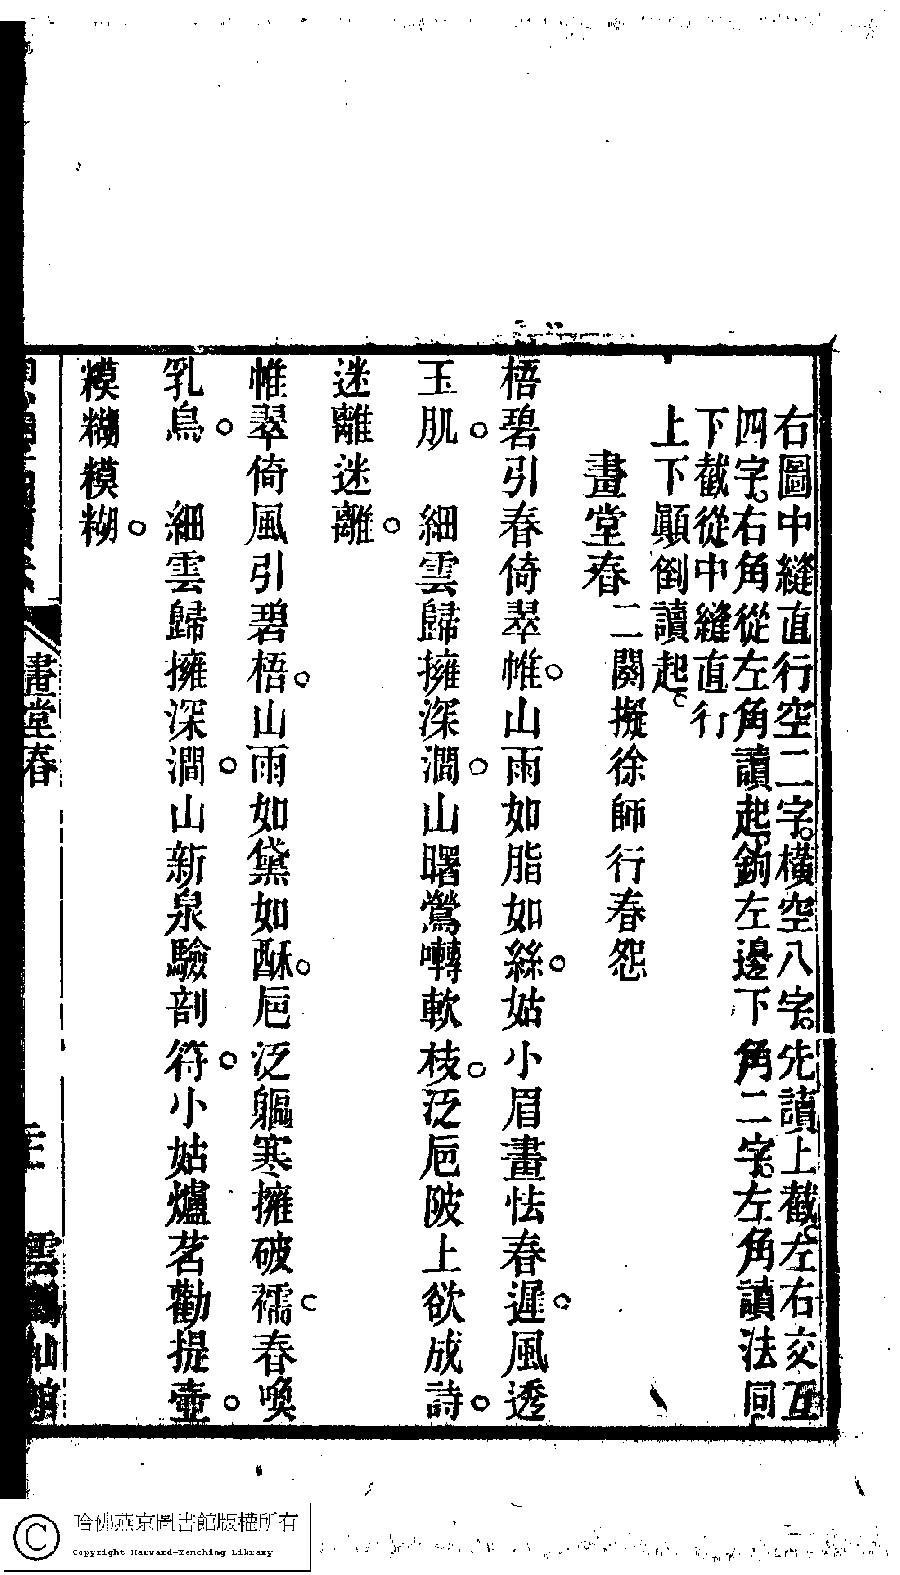 右圖中縫直行空二字。橫空八字。先讀上截。左右交互
四字。右角從左角讀起。鉤左邊下角二字。左角讀法同。
下截從中縫直行
上下顛倒讀起。
畫堂春 二闋擬徐師行春怨
梧碧引春倚翠帷。山雨如脂如絲。姑小眉畫怯春遲。風透
玉肌。 細雲歸擁深澗。山曙鶯囀軟枝。泛巵陂上欲成詩。
迷離迷離。
帷翠倚風引碧梧。山雨如黛如酥。巵泛軀寒擁破襦。春喚
乳烏。 細雲歸擁深澗。山新泉驗剖符。小姑爐茗勸提壷。
糢糊模糊。
畫堂春
雲鶴仙館
哈佛燕京圖書館版權所有
Copyright Harvard-Yenching Library